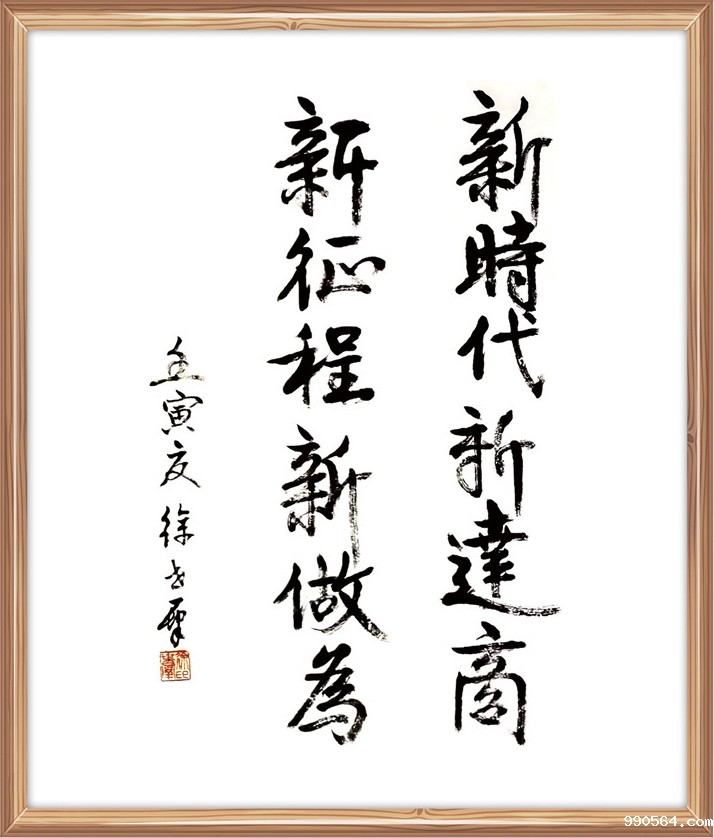 新時代新達商
新征程新做為
壬寅夏徐
990564.com